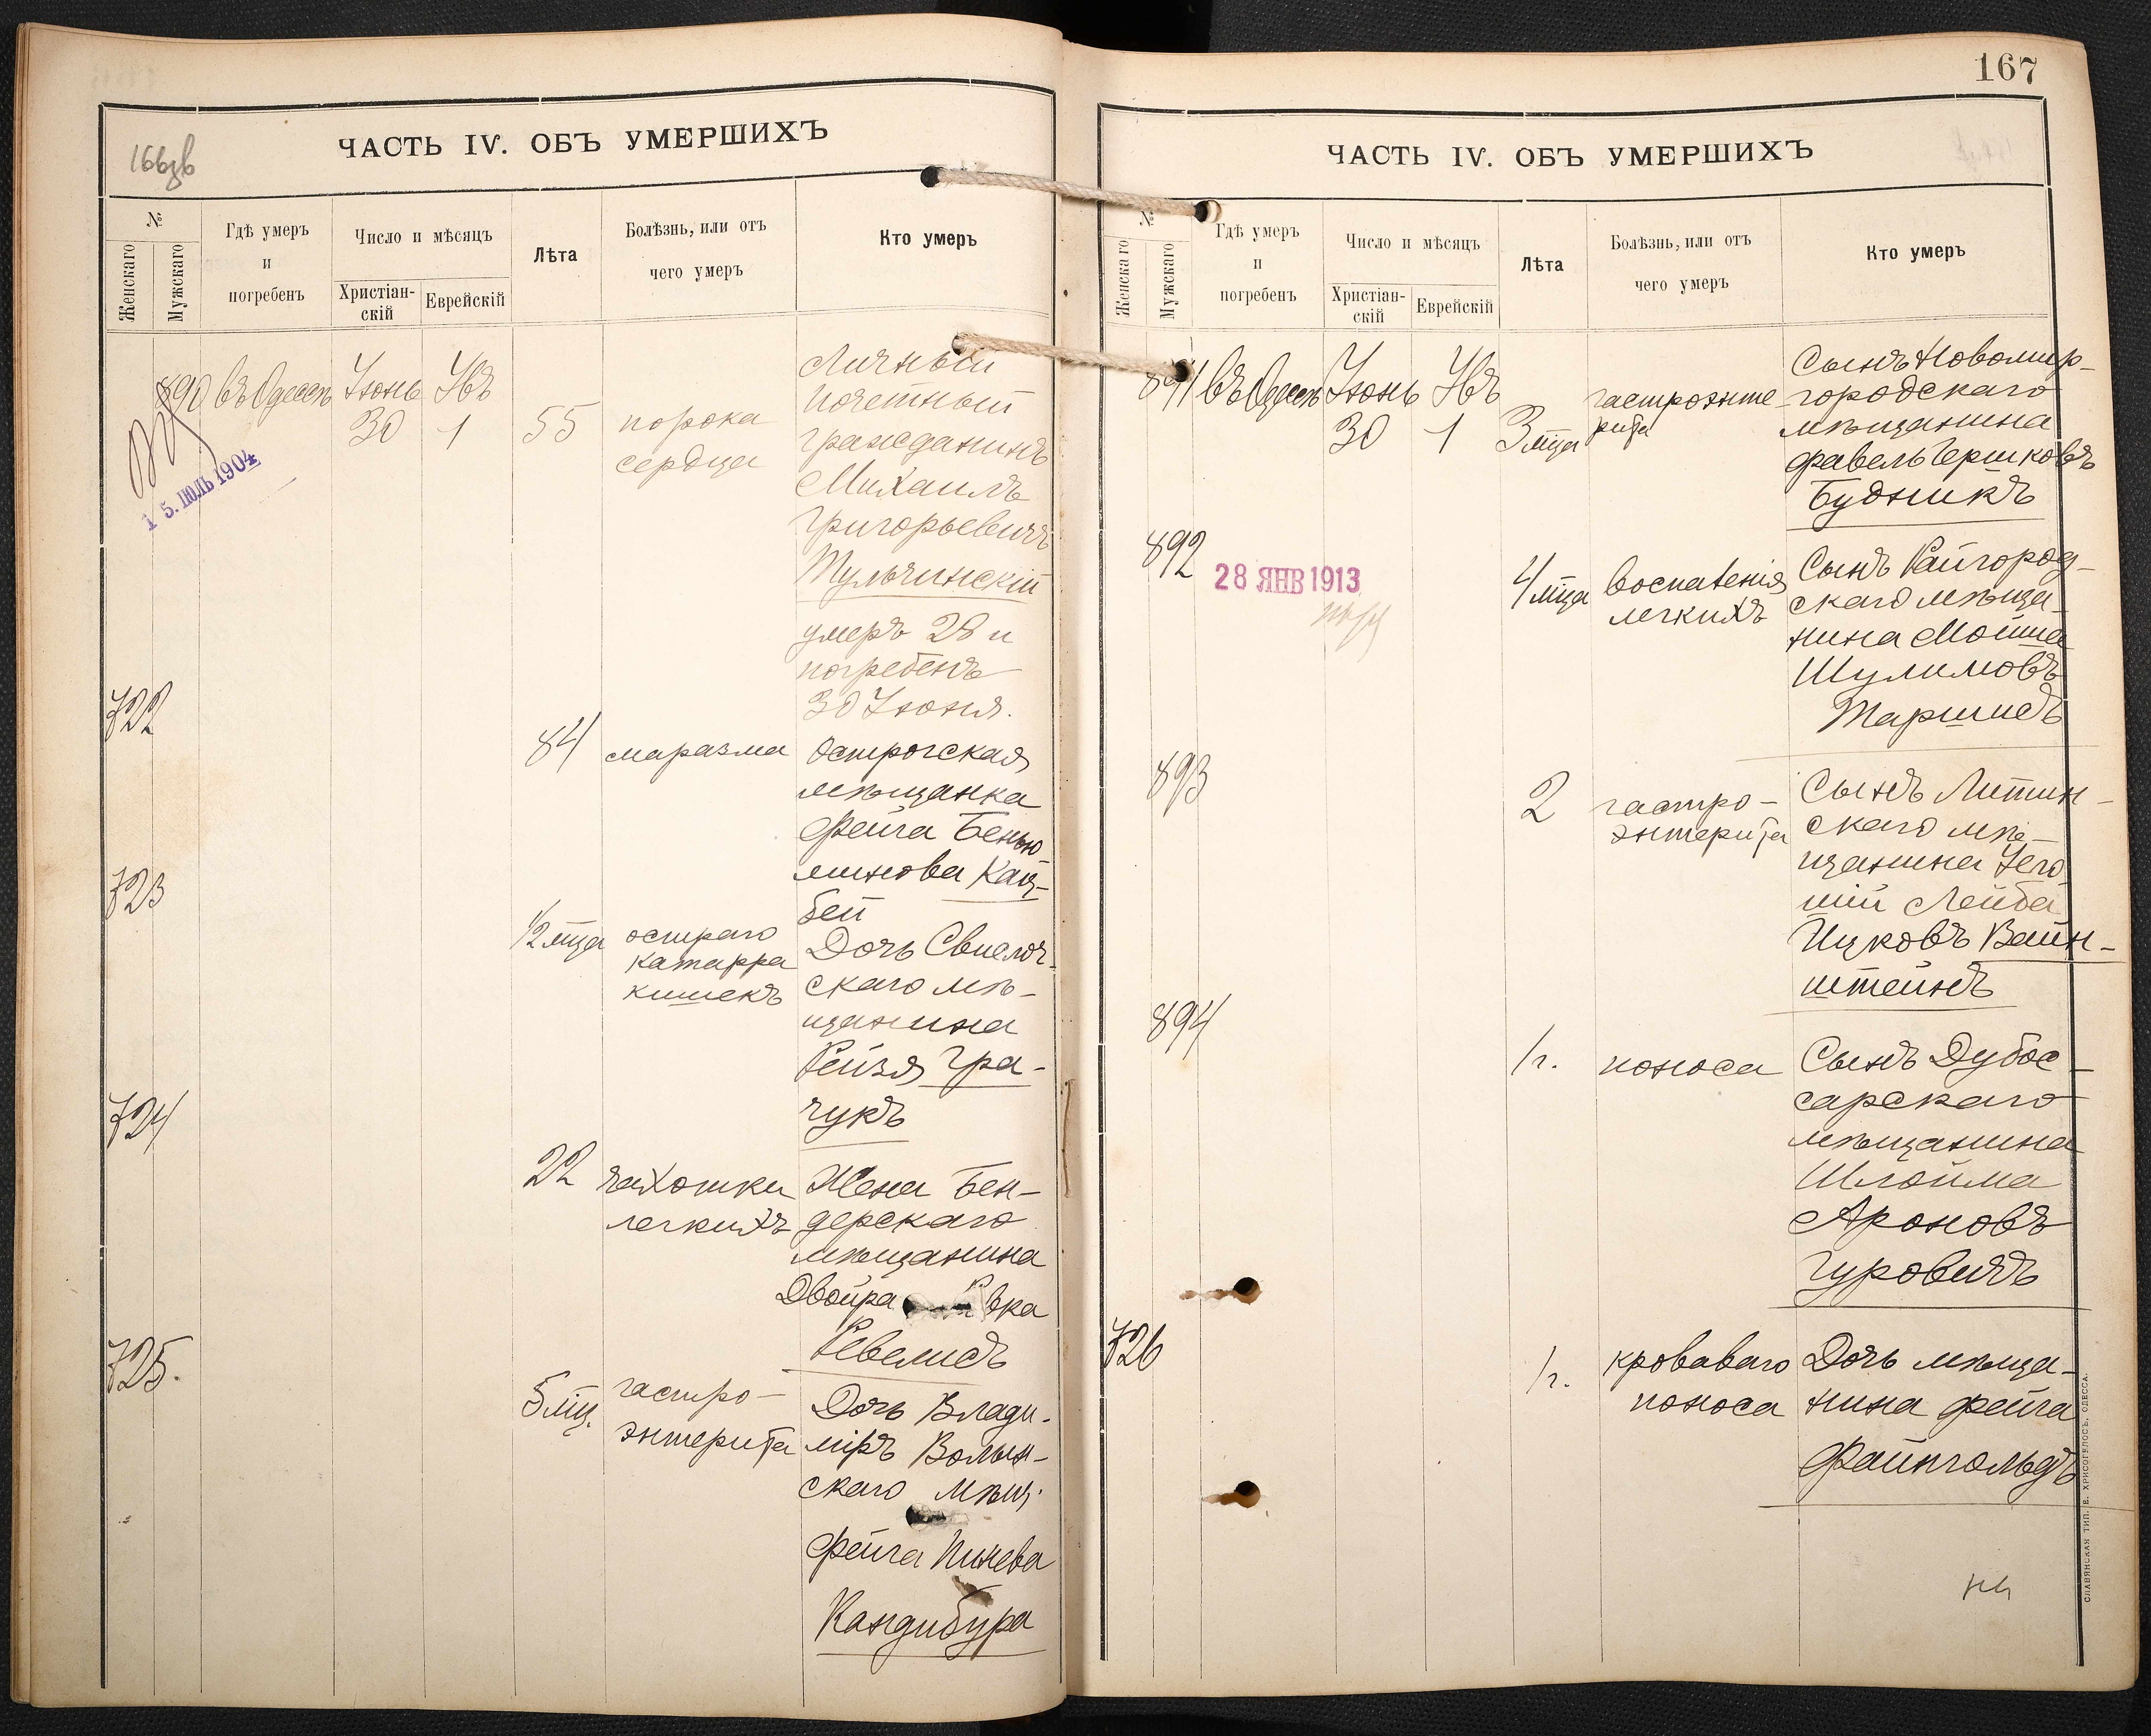 166зв
ЧАСТЬ IV. ОБЪ УМЕРШИХЪ
№
Женскаго
Мужскаго
Гдѣ умеръ
и
погребенъ
Число и мѣсяцъ
Христіан-
скій
Еврейскій
Лѣта
Болѣзнь, или отъ
чего умеръ
Кто умеръ
890 въ Одессѣ Іюнь
30
1
55
порока
сердца
Личный
почетный
гражданинъ
Михаилъ
Григорьевичъ
Тульчинскій
умеръ 28 и
погребенъ
30 Іюня.
15. ІЮЛЬ 1904
722
84
маразма
Острогская
мѣщанка
Фейга Бенью
минова Кац-
бей
723
1/2 мца
остраго
катарра
кишекъ
Дочь
скаго мѣ-
щанина
Рейзя Гра-
чукъ
724
22
чахотки
легкихъ
Жена Бен-
дерскаго
мѣщанина
Двойра
Ревелисъ
725.
5 мц.
гастро-
энтерита
Дочь Влади-
міръ Волын-
скаго мѣщ.
Фейга Пинева
Кандибура
167
ЧАСТЬ IV. ОБЪ УМЕРШИХЪ
№
Женскаго
Мужскаго
Гдѣ умеръ
и
погребенъ
Число и мѣсяцъ
Христіан-
скій
Еврейскій
Лѣта
Болѣзнь, или отъ
чего умеръ
Кто умеръ
891 въ Одессѣ Іюнь
30
1
3 мца
гастроэнте-
рита
Сынъ Новомир-
городскаго
мѣщанина
Фавель Гершковъ
Будникъ
892
28 ЯНВ 1913
4 мца
воспаленія
легкихъ
Сынъ Райгород-
скаго мѣща-
нина Мойша
Шулимовъ
Таршисъ
893
2
гастро-
энтерита
Сынъ Литин-
скаго мѣ-
щанина
Лейба
Ицковъ Вайн-
штейнъ
894
1 г.
поноса
Сынъ Дубос-
сарскаго
мѣщанина
Шлойма
Ароновъ
Гуровичъ
726
1 г.
кроваваго
поноса
Дочь мѣща-
нина Фейга
Файнгольдъ
СЛАВЯНСКАЯ ТИП. Е. ХРИСОГЕЛОСЪ, ОДЕССА.